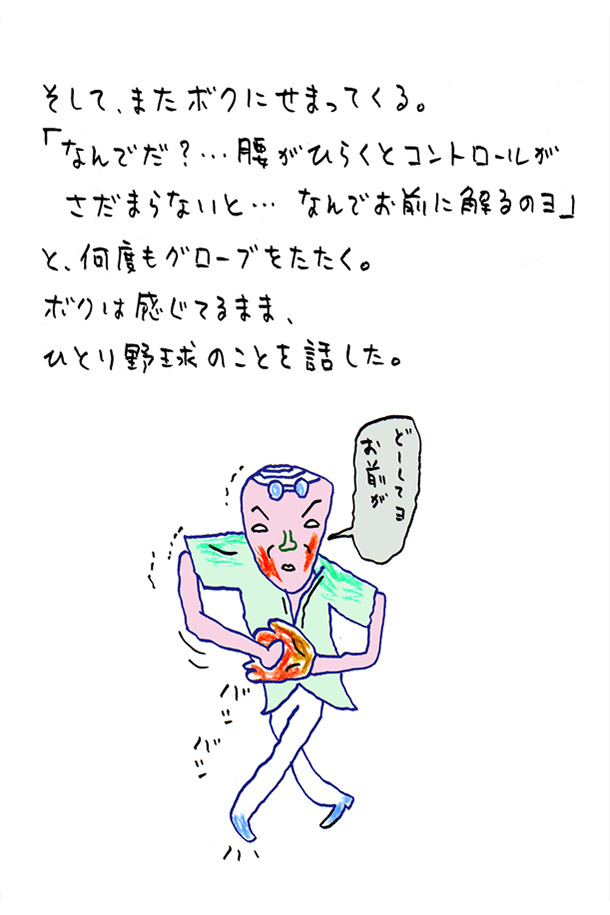 そして、またボクにせまってくる。
「なんでだ?…腰がひらくとコントロールが
さだまらないと… なんでお前に解るのヨ」
と、何度もグローブをたたく。
ボクは感じてるまま、
ひとり野球のことを話した。
どーしてヨ
お前が
バシ
バシ